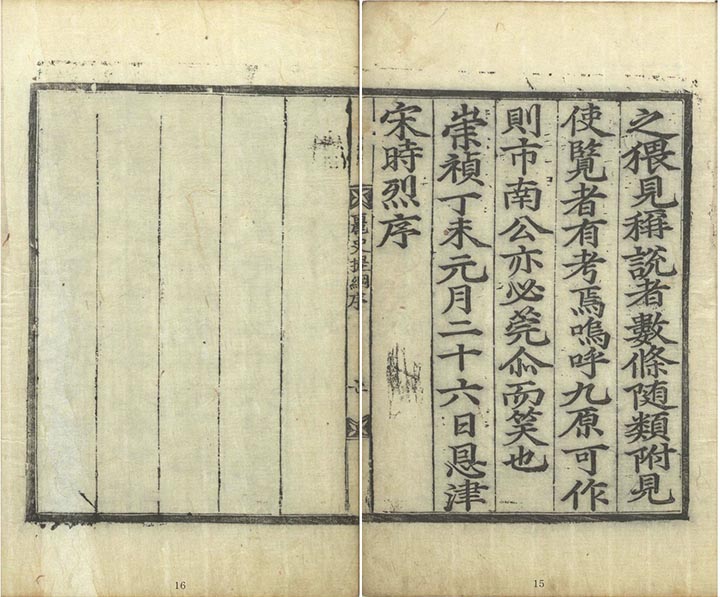 之猥見稱說者數條随類附見
使覽者有考焉嗚呼九原可作
則市南公亦必莞尒而笑也
崇禎丁未元月二十六日恩津
宋時烈序
麗史提綱序
七
15
16